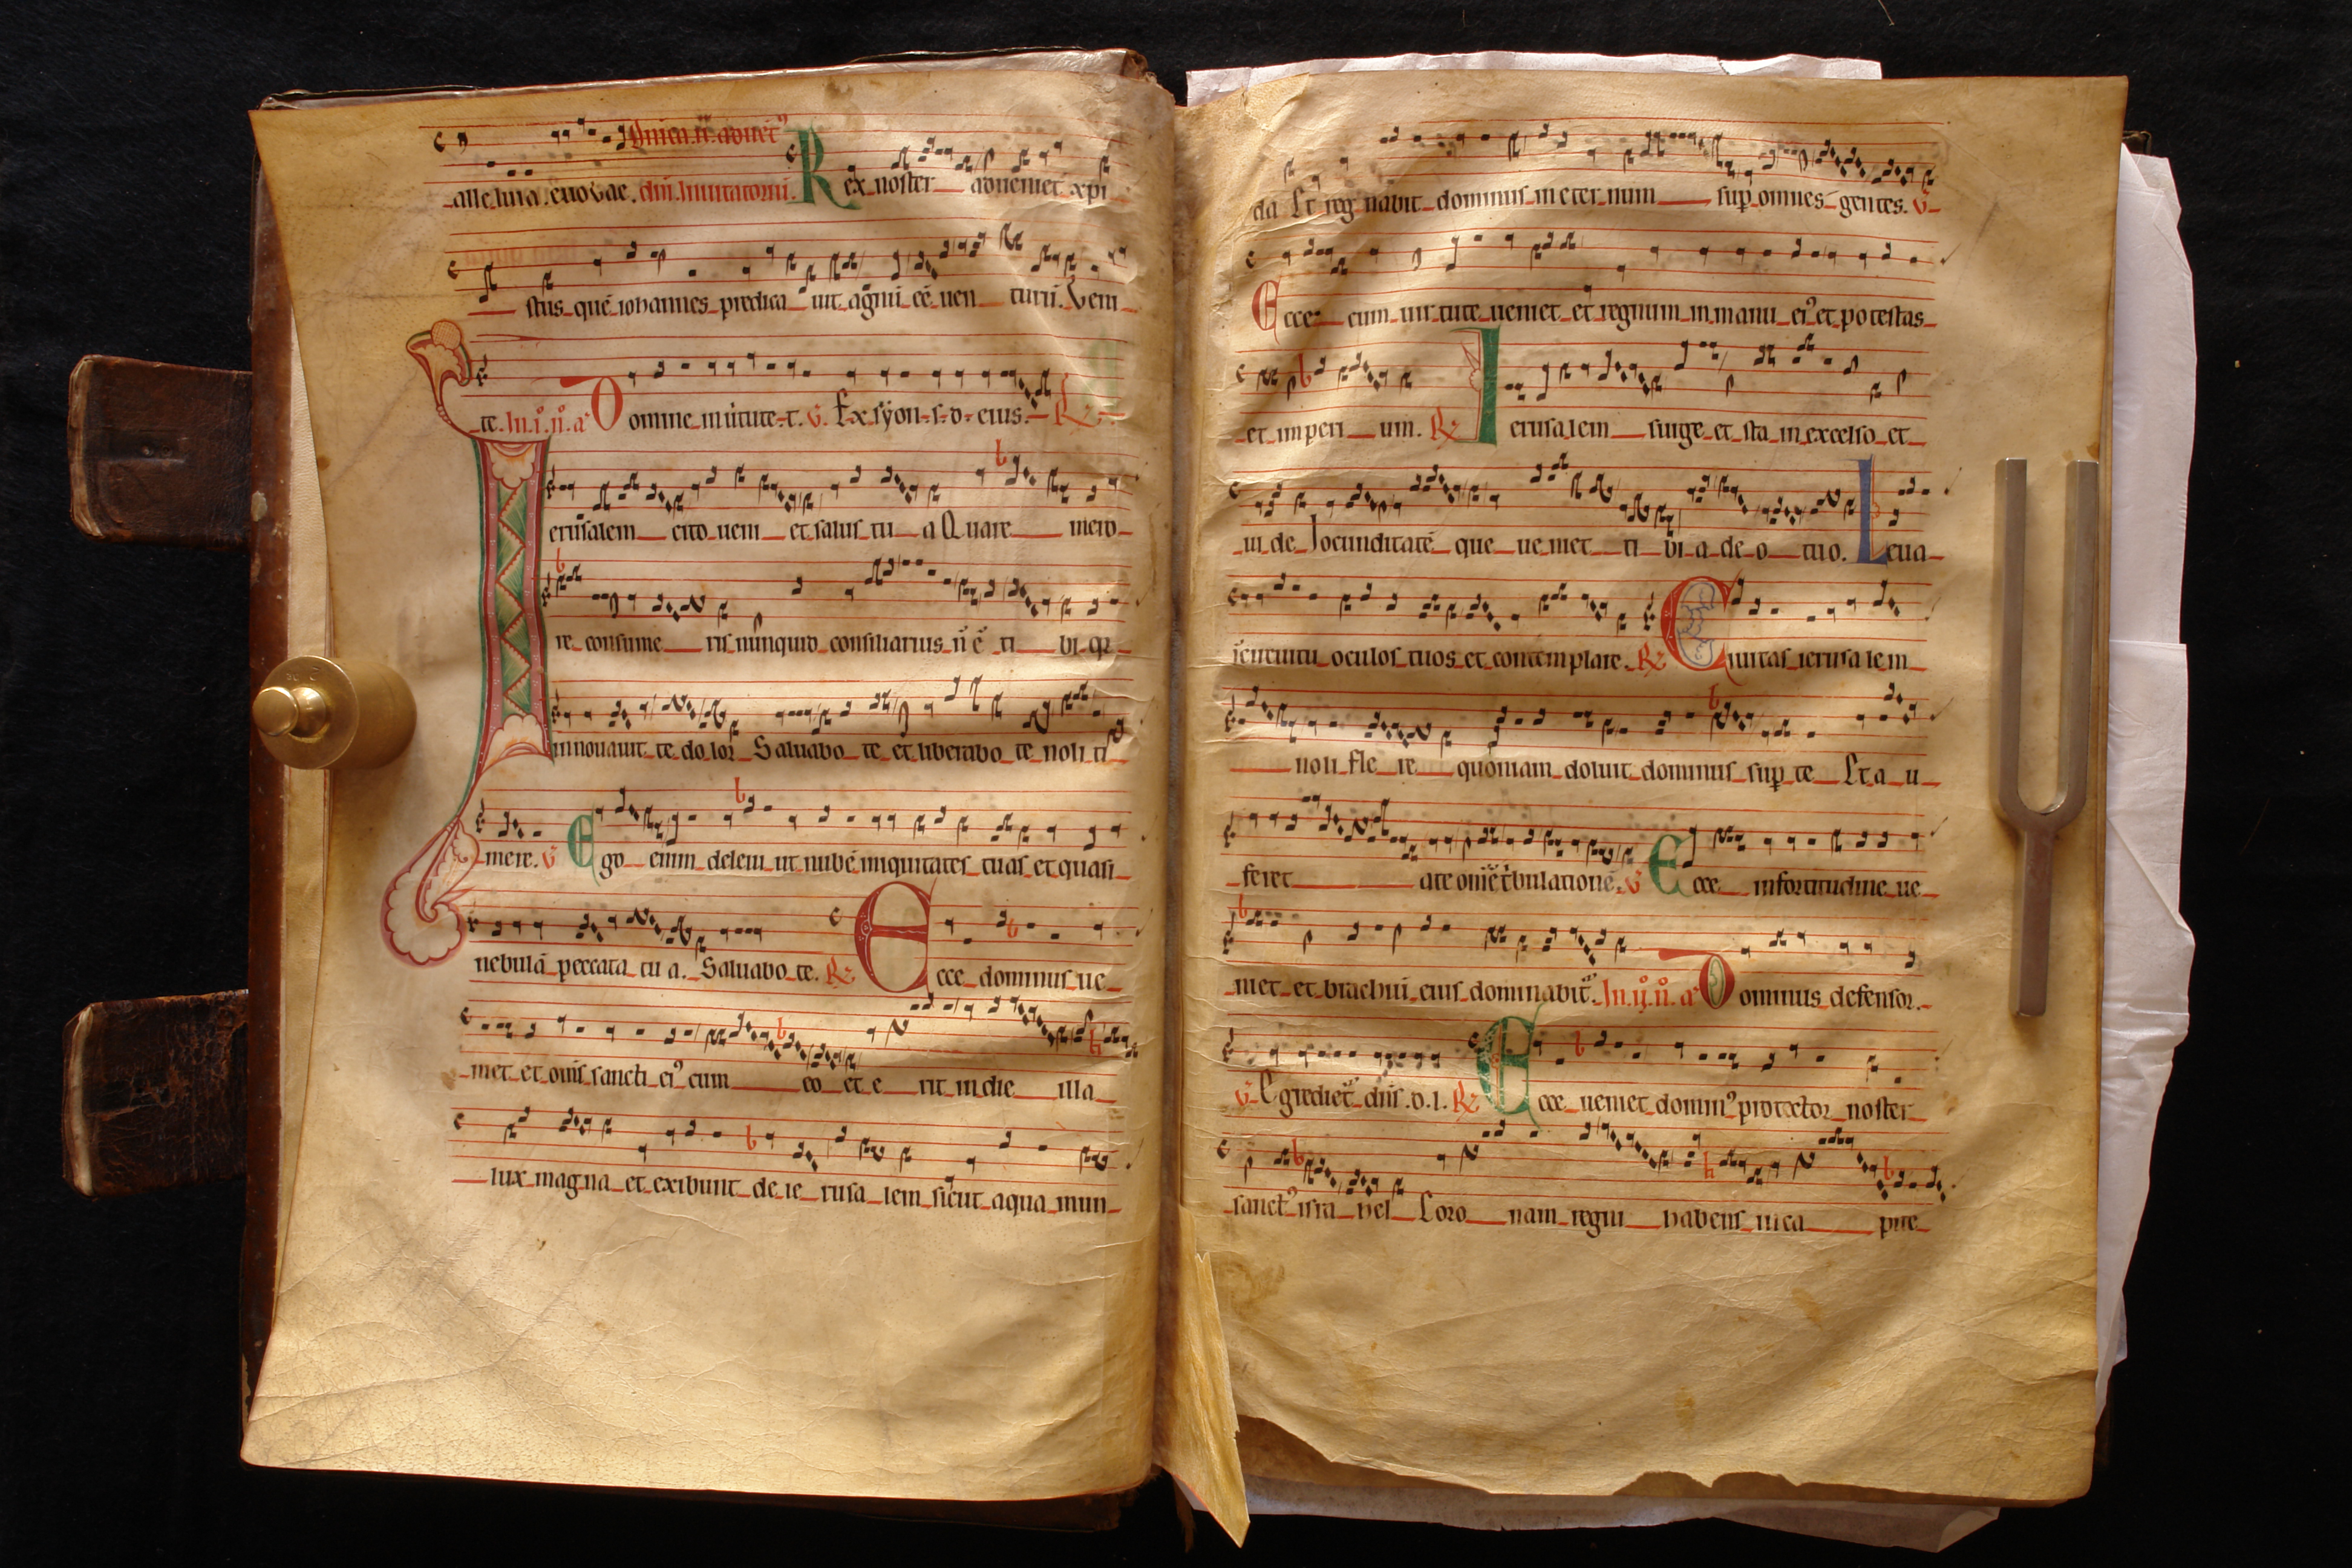 Dnica .ii. aduēt᷒
alleluia . euouae . diū. Inuitatoriū. Rex noster adueniet xpi
stus quē iohannes predica uit agnū eē uen turū. Veni
te. In .i. n̊. a᷒ Domine in uirtute .t. V. Ex syon .s. d. eius. R.
Ierusalem cito ueni et salus tu a Quare mero
re consume ris nunquid consiliarius n̄ ē ti bi qr
innouauit te do lor Saluabo te et liberabo te noli ti
mere. V. Ego enim deleui ut nubē iniquitates tuas et quasi
nebulā peccata tu a. Saluabo te. R. Ecce dominus ue
niet et om̄s sancti ei᷒ cum eo et e rit in die illa
lux magna et exibunt de ie rusa lem sicut aqua mun
da Et reg nabit dominus in eter num sup omnes gentes. V.
Ecce cum uir tute ueniet et regnum in manu ei᷒ et potestas
et imperi um. R. Ierusalem surge et sta in excelso et
ui de Iocunditatē que ue niet ti bi a de o tuo. V. Leua
in circuitu oculos tuos et contemplare. R. Ciuitas ierusalem
noli fle re quoniam doluit dominus sup te Et a u
feret a te om̄ē t'bulationē. V. Ecce in fortitudine ue
niet et brachiū eius dominabit᷒. In .ij. n̊. a᷒ Dominus defensor.
V. Egrediet᷒ dn̄s .d. l. R. Ecce ueniet domin᷒ protector noster
sanct᷒ isra hel Coro nam regni habens in ca pite